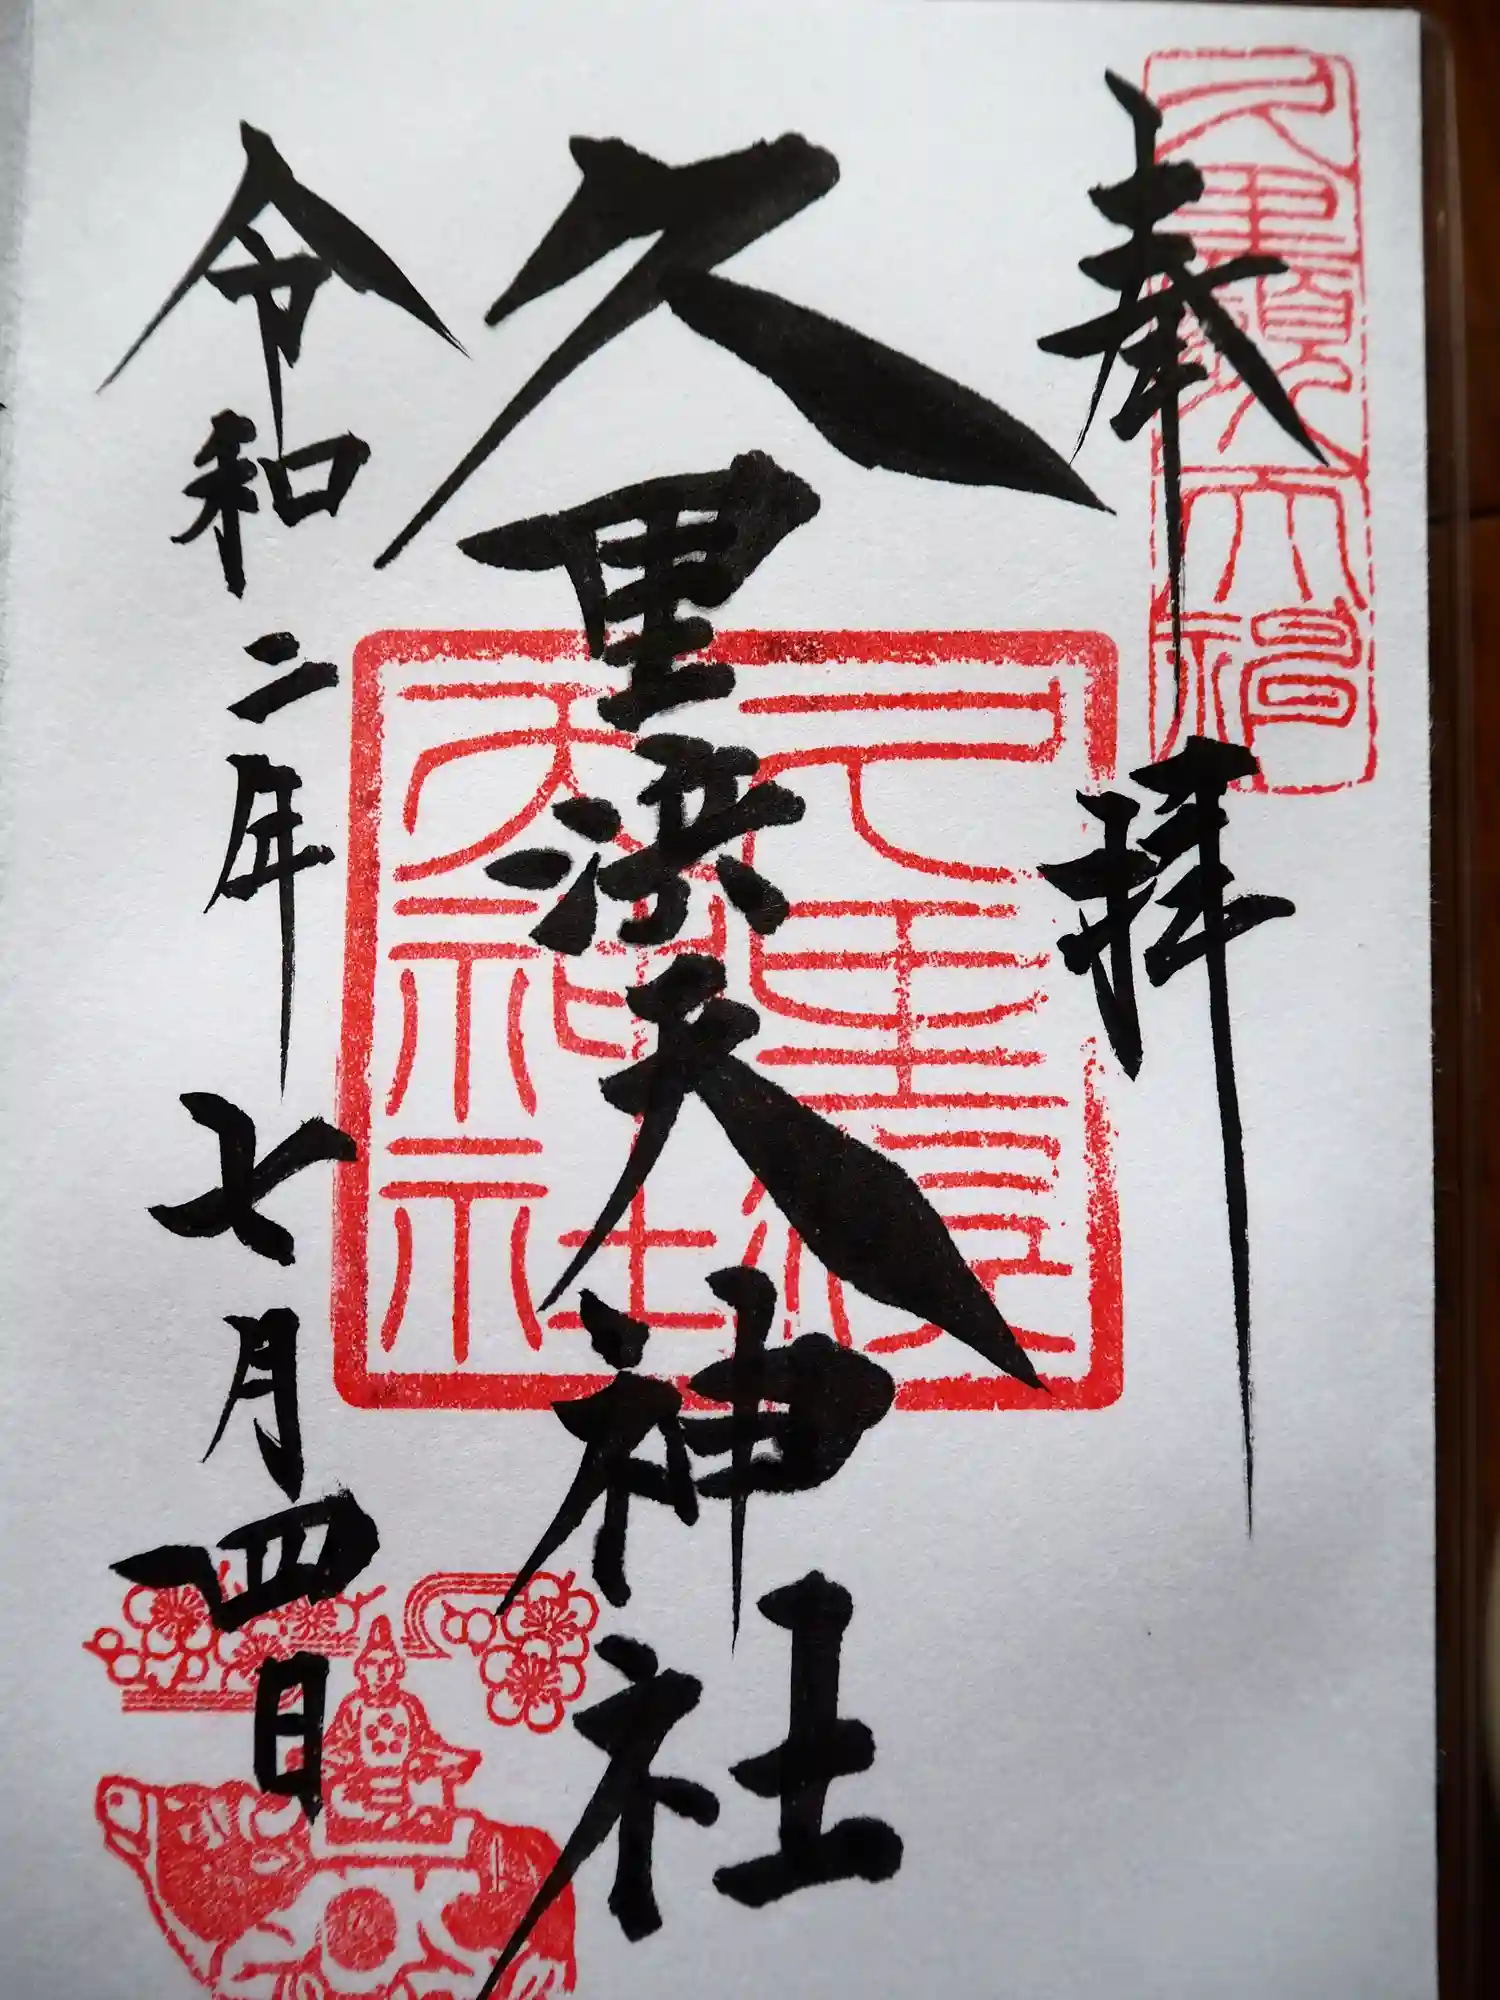 奉拝
久里浜天神社
令和二年七月四日
久里濱
天神社